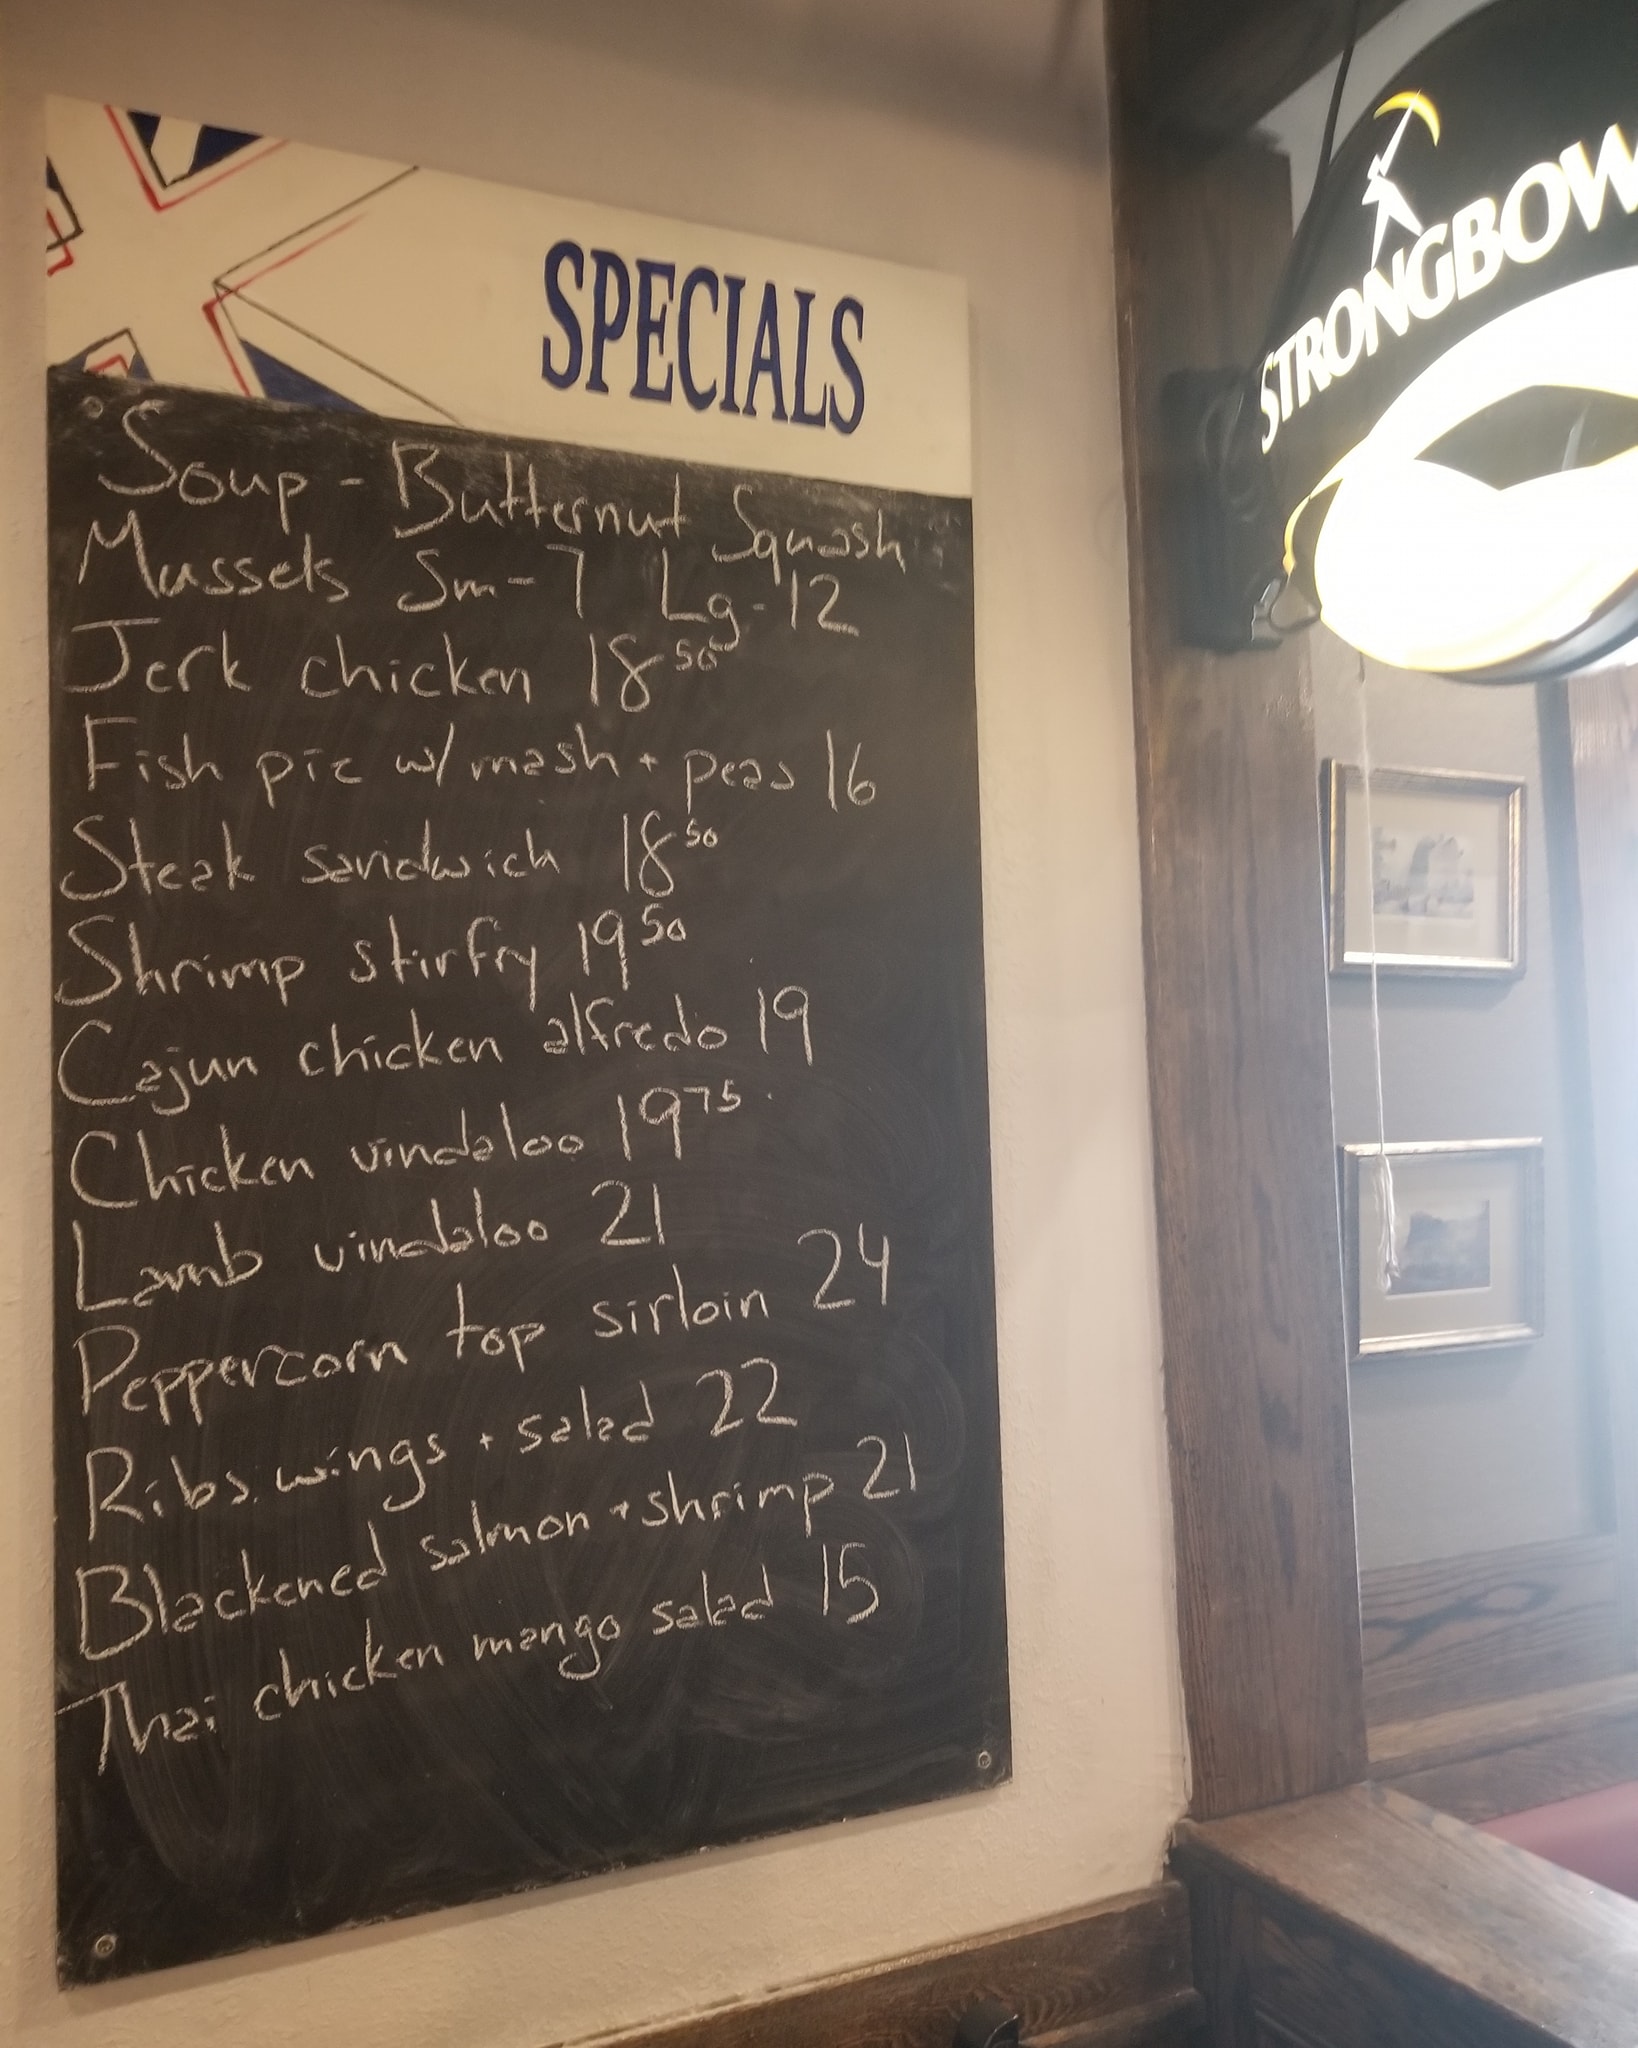 SPECIALS
Soup - Butternut Squash
Mussels Sm-7 Lg-12
Jerk chicken 18⁵⁰
Fish pie w/ mash + peas 16
Steak sandwich 18⁵⁰
Shrimp stirfry 19⁵⁰
Cajun chicken alfredo 19
Chicken vindaloo 19⁷⁵
Lamb vindaloo 21
Peppercorn top sirloin 24
Ribs, wings + salad 22
Blackened salmon + shrimp 21
Thai chicken mango salad 15
STRONGBOW